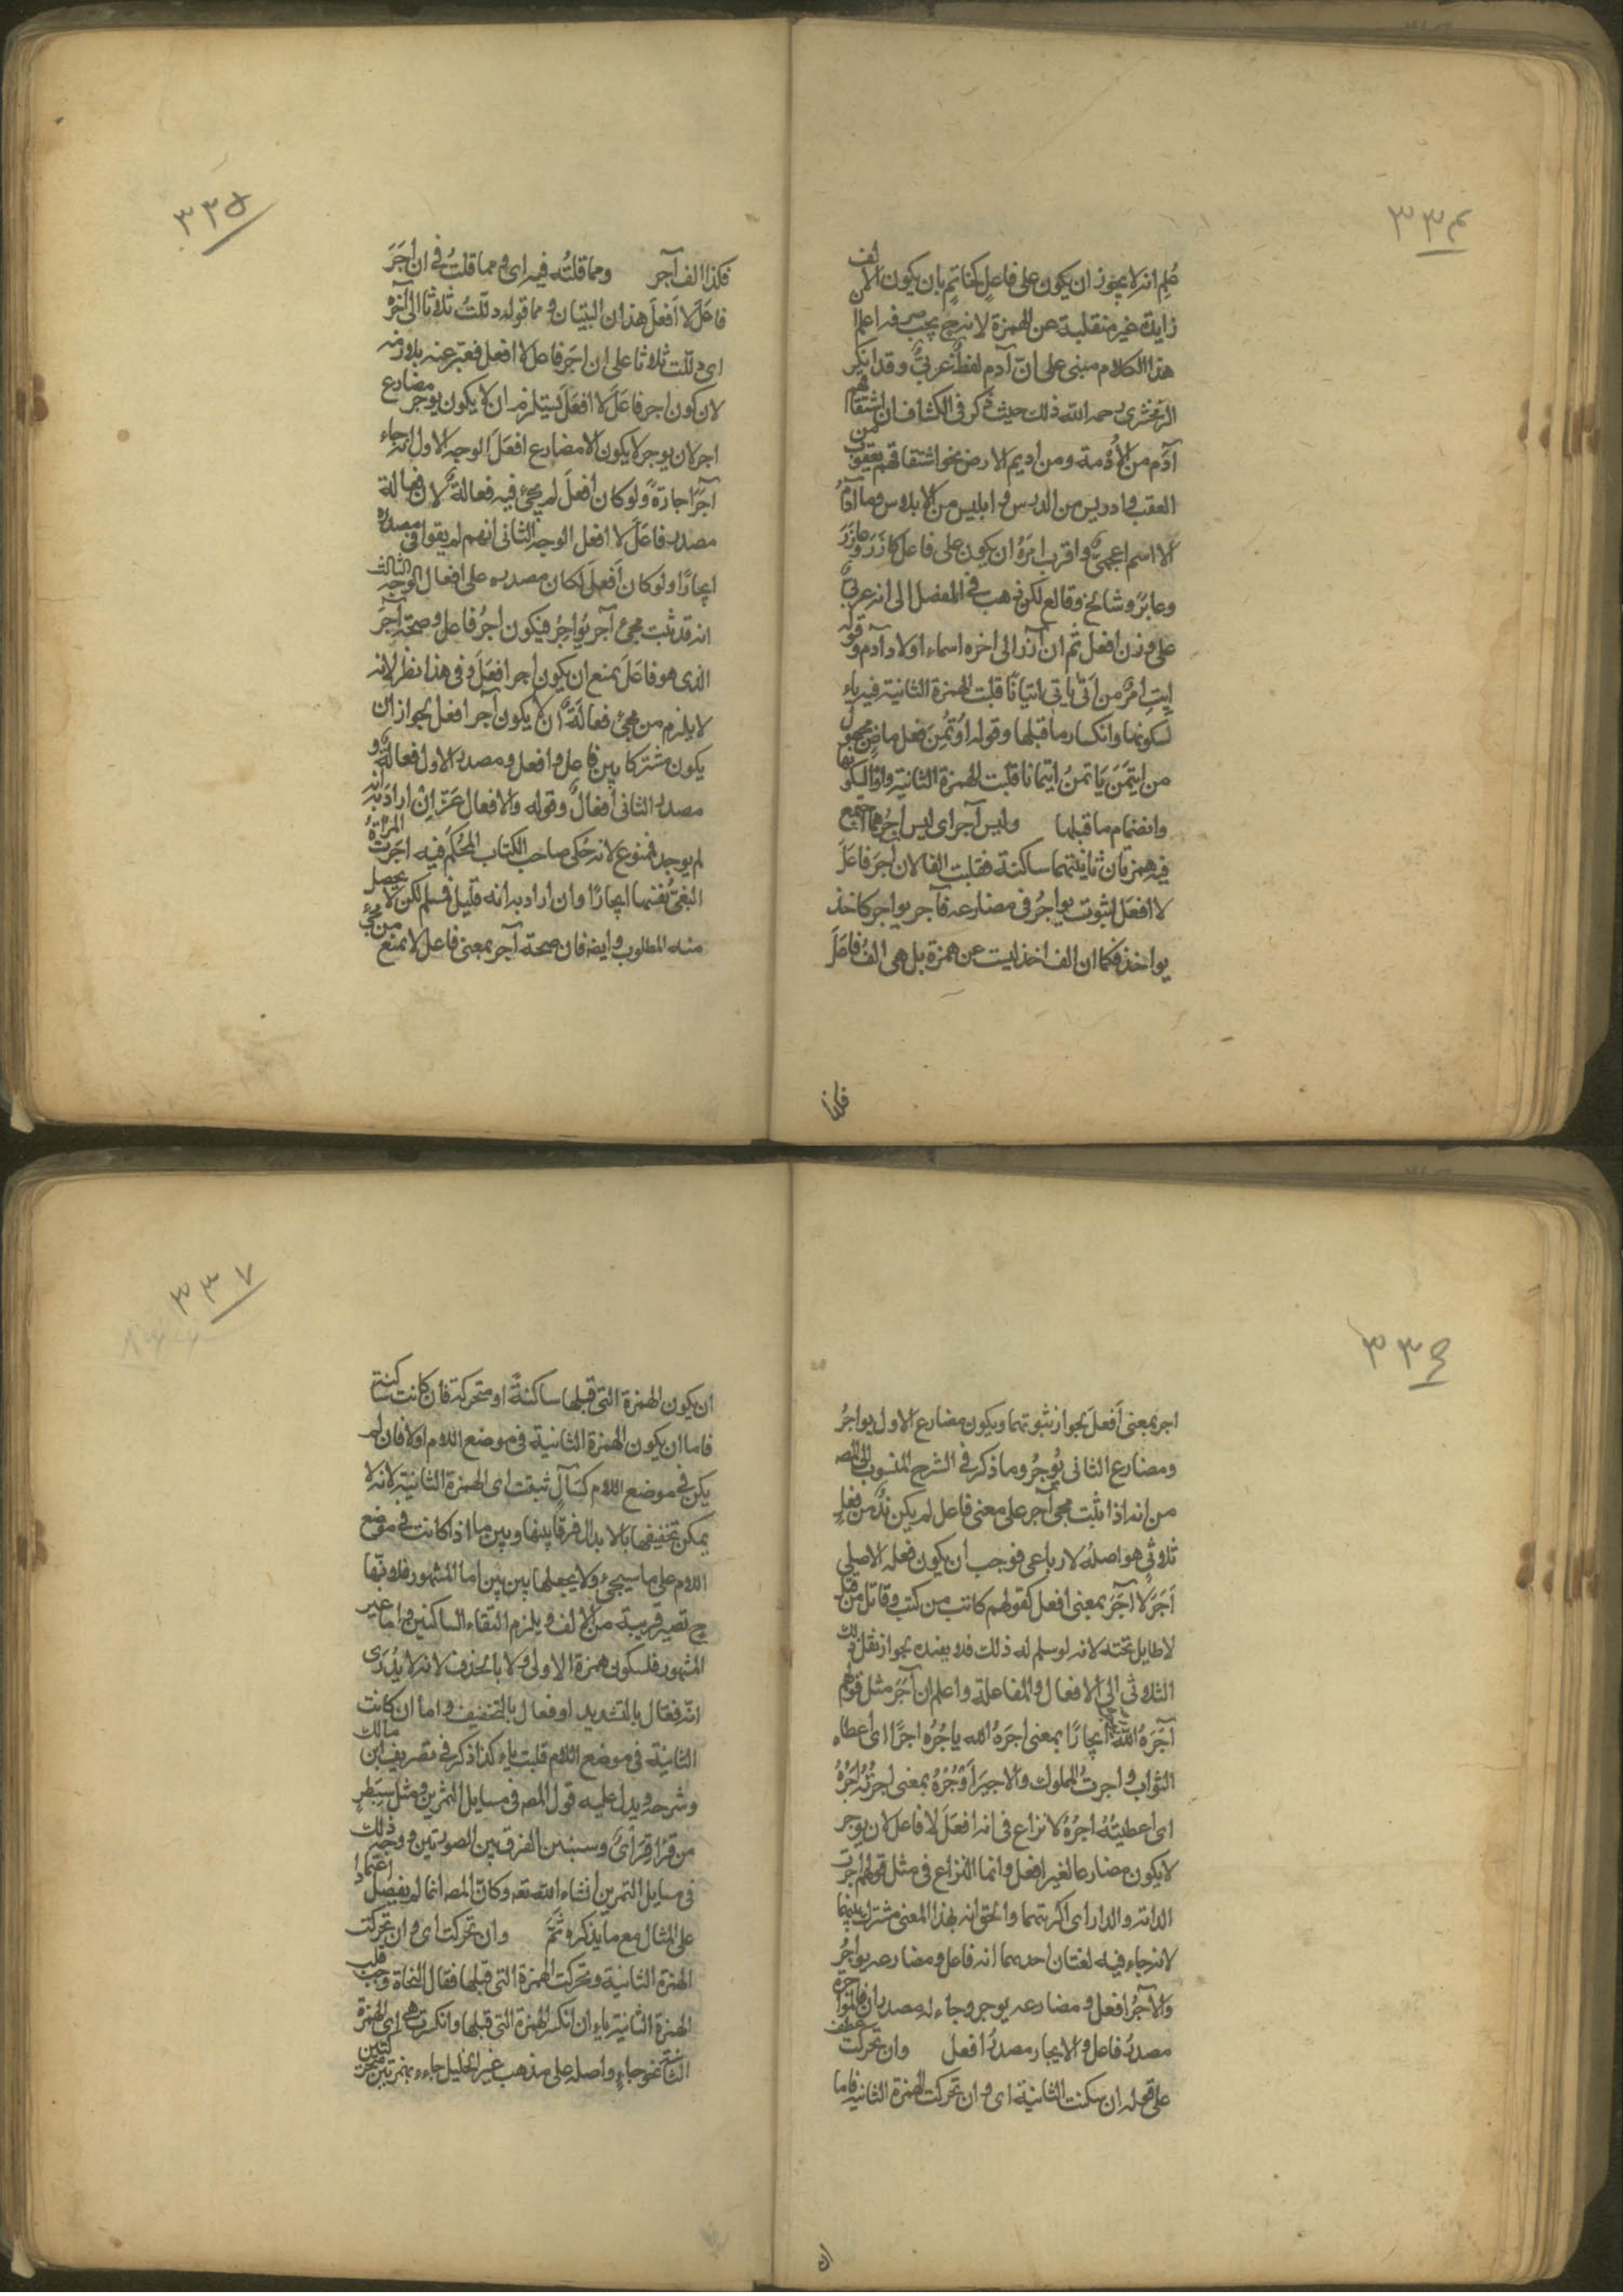 ٣٣٤
عُلِم انه لا يجوز ان يكون على فاعل كخاتم بان يكون الالف
زايدة غير منقلبة عن الهمزة لانه ح يجب صرفه اعلم ان
هذا الكلام مبنى على انّ آدم لفظٌ عربىٌّ وقد انكر
الزمخشرى رحمه الله ذلك حيث ذكر فى الكشاف ان اشتقاقهم
آدم من الأُدمة ومن اديم الارض نحو اشتقاقهم يعقوب من
العقب وادريس من الدرس وابليس من الابلاس وما آدمُ
الا اسم اعجمىٌّ واقرب امره ان يكون على فاعل كآزَرَ وعازَرَ
وعابَر وشالخ وفالغ لكن ذهب فى المفصل الى انه عربىٌّ
على وزن افعل ثم ان آزر الى اخره اسماء اولاد آدم وقوله
ايتِ امرٌ من اتى ياتى اتيانًا قلبت الهمزة الثانية فيه ياء
لسكونها وانكسار ما قبلها وقوله اُوتُمِنَ فعل ماضٍ مجهول
من ايتَمَنَ يَاتمنُ ايتمانا قلبت الهمزة الثانية واوًا لسكونها
وانضمام ما قبلها وليس آجر اى ليس آجر مما اجتمع
فيه همزتان ثانيتهما ساكنة فقلبت الفا لان آجَرَ فاعَلَ
لا افعَلَ لثبوت يواجِرُ فى مضارعه فآجر يواجر كآخذ
يواخذ فكما ان الف اخذ ليست عن همزة بل هى الفُ فاعَلَ
فكذا
٣٣٥
فكذا الف آجر ومما قلتُه فيه اى ومما قلتُ فى ان اجَرَ
فاعَلَ لا اَفعلَ هذان البيتان ومما قوله دللتُ ثلاثا الى آخره
اى دللت ثلاثا على ان اجَرَ فاعل لا افعل فعبّر عنه بلازمه
لان كون اجر فاعَلَ لا افعَلَ يستلزم ان لا يكون يوجر مضارع
اجر لان يوجر لا يكون الا مضارع افعَلَ الوجه الاول انه جاء
آجَرَ اجارةً ولو كان افعلَ لم يجئ فيه فعالةٌ لان فعالة
مصدر فاعَلَ لا افعل الوجه الثانى انهم لم يقولوا فى مصدره
ايجارًا ولو كان اَفعلَ لكان مصدره على افعال الوجه الثالث
انه قد ثبت مجئ آجر يُواجِرُ فيكون اجرُ فاعل وصحة آجَرَ
الذى هو فاعَلَ يمنع ان يكون اجر افعَلَ وفى هذا نظر لانه
لا يلزم من مجئ فعالَةٌ ان لا يكون آجر افعل لجواز ان
يكون مشتركا بين فاعل وافعل ومصدر الاول فعالةٌ و
مصدر الثانى اِفعالٌ وقوله والافعال عَزّ ان اراد به انه
لم يوجد فممنوع لانه حكى صاحب الكتاب المحكم فيه اجرت المراةُ
البغىّ نفسها ايجارًا وان اراد به انه قليل فمسلم لكن لا يحصل
منه المطلوب وايضه فان صحة آجر بمعنى فاعل لا يمنع من مجئ
٣٣٦
اجر بمعنى اَفعلَ لجواز ثبوتهما ويكون مضارع الاول يواجرُ
ومضارع الثانى يُوجرُ وما ذكر فى الشرح المنسوب الى المصـ
من انه اذا ثبت مجئ آجر على معنى فاعل لم يكن بُدٌّ من فعلٍ
ثلاثىٍّ هو اصلُه لا رباعى فوجب ان يكون فعله الاصلى
اَجَرَ لا آجَرَ بمعنى افعل كقولهم كاتب من كتب وقاتل من قتل
لا طايل تحته لانه لو سلم له ذلك فلا يفيده لجواز نقل ذلك
الثلاثى الى الافعال والمفاعلة واعلم ان آجَرَ مثل قولهم
آجَرَهُ اللهُ ايجارًا بمعنى اجرَهُ الله ياجُرُه اجرًا اى اعطاه
الثواب واجرتُ المملوك والاجير اُوجِرُهُ بمعنى اجرتُهُ آجُرُهُ
اى اعطيتُهُ اجرُهُ لا نزاع فى انه افعَلَ لا فاعل لان يوجر
لا يكون مضارعا لغير افعل وانما النزاع فى مثل قولهم اجرت
الدابة والدار اى اكريتهما والحق انه بهذا المعنى مشترك بينهما
لانه جاء فيه لغتان احدهما انه فاعل ومضارعه يواجِرُ
والآخرُ افعل ومضارعه يوجر وجاء له مصدران فالمواجرة
مصدرُ فاعل والايجار مصدرُ افعل وان تحركت عطف
على قوله ان سكنت الثانية اى وان تحركت الهمزة الثانية فاما
ان
٣٣٧
ان يكون الهمزة التى قبلها ساكنةً او متحركة فان كانت ساكنة
فاما ان يكون الهمزة الثانية فى موضع اللام اولا فان لم
يكن فى موضع اللام كسَآلٍ ثبتت اى الهمزة الثانية لانه لا
يمكن تخفيفها بالابدال فرقًا بينها وبين ما اذا كانت فى موضع
اللام على ما سيجئ ولا يجعلها بين بين اما المشهور فلانها
ح تصير قريبة من الالف ويلزم التقاء الساكنين واما غير
المشهور فلسكون همزة الاولى ولا بالحذف لانه لا يُدْرَى
انه فعّال بالتشديد او فعال بالتخفيف واما ان كانت
الثانية فى موضع اللام قلبت ياء كذا ذكر فى تصريف ابن مالك
وشرحه ويدل عليه قول المصـ فى مسايل التمرين ومثل سِبَطْرٍ
من قرأ قِرَأْىٌ وسنبين الفرق بين الصورتين ووجه ذلك
فى مسايل التمرين ان شاء الله تعـ وكان المصـ انما لم يفصل اعتمادا
على المثال مع ما يذكره ثَمَّ وان تحركت اى وان تحركت
الهمزة الثانية وتحركت الهمزة التى قبلها فقال النحاة وجب قلب
الهمزة الثانية ياء ان انكسر الهمزة التى قبلها وانكسرت هى اى الهمزة
الثانية نحو جاءٍ واصله على مذهب غير الخليل جاءء بهمزتين متحركتين